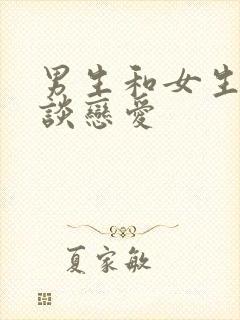 男生和女生
談戀愛
夏家敏